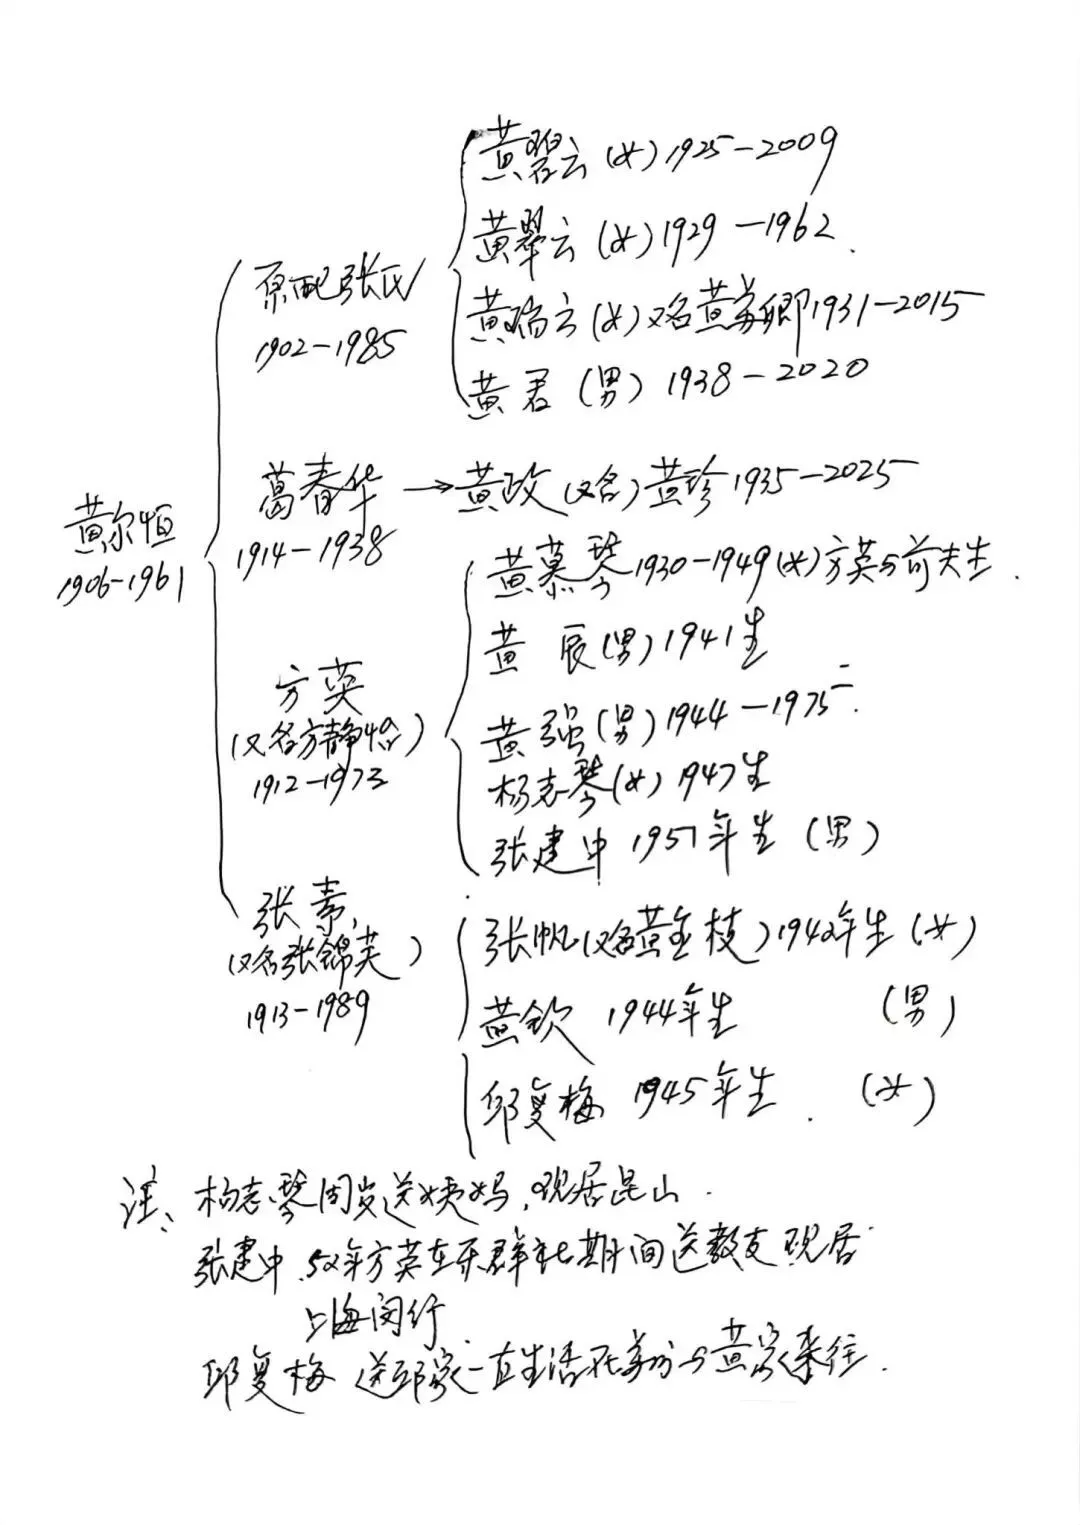 黄碧云(女)1925-2009
黄翠云(女)1929-1962.
原配张氏
1902-1985
黄瑞云(女)又名黄苏卿1931-2015
黄君(男)1938-2020
葛春华→黄政(又名)黄珍1935-2025
1914-1938
黄尔恒
1906-1961
黄慕琴1930-1949(女)方英与前夫生.
黄 辰(男)1941生
方英
(又名方静怡)
1912-1973
黄强(男)1944-1975
杨志琴(女)1947生
张建中1951年生(男)
张素
(又名张锦芙)
1913-1989
张帆(又名黄金枝)1942年生(女)
黄钦 1944年生 (男)
邱复梅 1945年生.(女)
注:杨志琴周岁送姨妈,现居昆山.
张建中.52年方英在乐群社期间送教友现居
上海闵行.
邱复梅 送邱家一直生活在 与黄家来往.